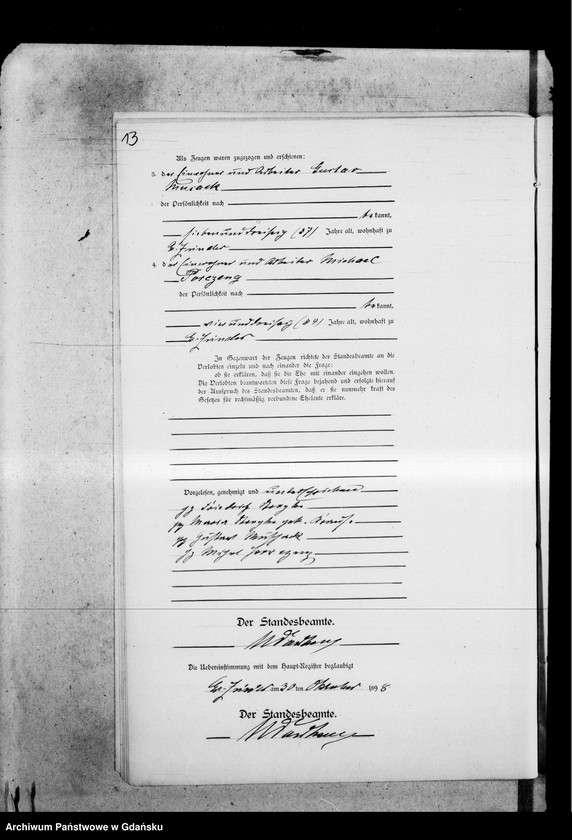 13
Als Zeugen waren zugezogen und erschienen:
3. der Einwohner und Arbeiter Gustav
der Persönlichkeit nach
bekannt,
siebenunddreißig (37) Jahre alt, wohnhaft zu
4. der Einwohner und Arbeiter Michael
der Persönlichkeit nach
bekannt,
vierunddreißig (34) Jahre alt, wohnhaft zu
In Gegenwart der Zeugen richtete der Standesbeamte an die
Verlobten einzeln und nach einander die Frage:
ob sie erklären, daß sie die Ehe mit einander eingehen wollen.
Die Verlobten beantworteten diese Frage bejahend und erfolgte hierauf
der Ausspruch des Standesbeamten, daß er sie nunmehr kraft des
Gesetzes für rechtmäßig verbundene Eheleute erkläre.
Vorgelesen, genehmigt und unterschrieben
Friedrich
Maria geb.
Gustav
Der Standesbeamte.
Die Uebereinstimmung mit dem Haupt-Register beglaubigt
am 30 ten Oktober 1898
Der Standesbeamte.
Archiwum Państwowe w Gdańsku